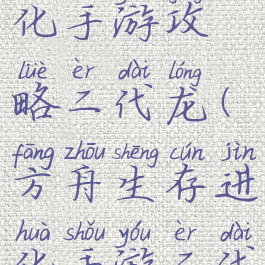 化手游攻
lüè èr dài lóng
略二代龙(
fāng zhōu shēng cún jìn
方舟生存进
huà shǒu yóu èr dài
化手游二代